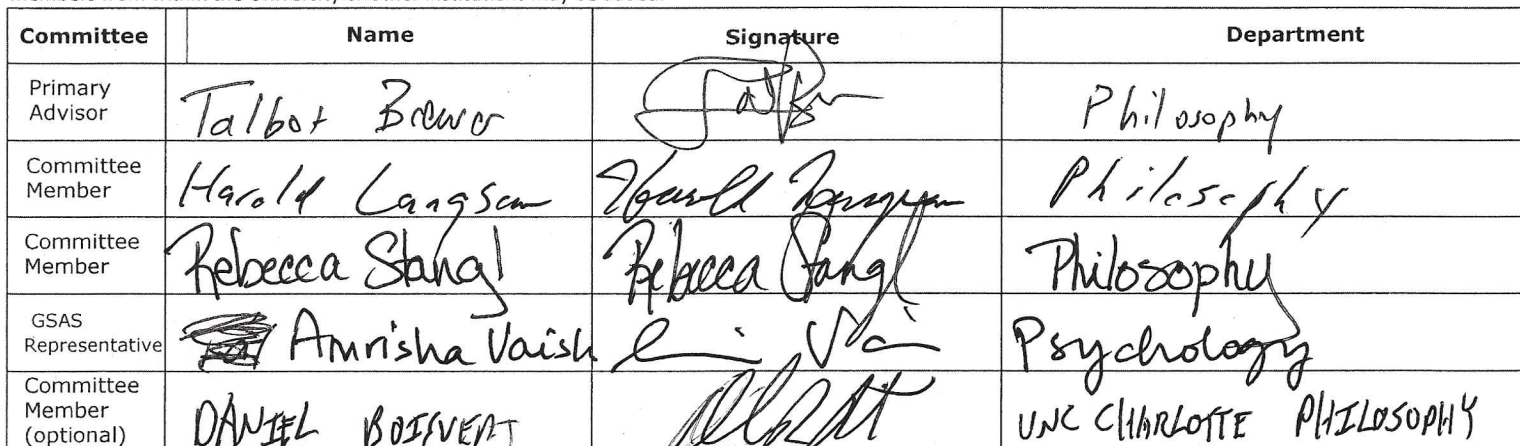 Committee Name Signature Department
Primary Advisor Talbot Brewer Philosophy
Committee Member Harold Langsam Harold Langsam Philosophy
Committee Member Rebecca Stangl Rebecca Stangl Philosophy
GSAS Representative Amrisha Vaish Psychology
Committee Member (optional) DANIEL BOISVERT UNC CHARLOTTE PHILOSOPHY